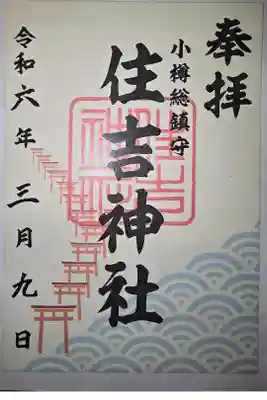 奉拝
小樽総鎮守
住吉神社
令和六年三月九日